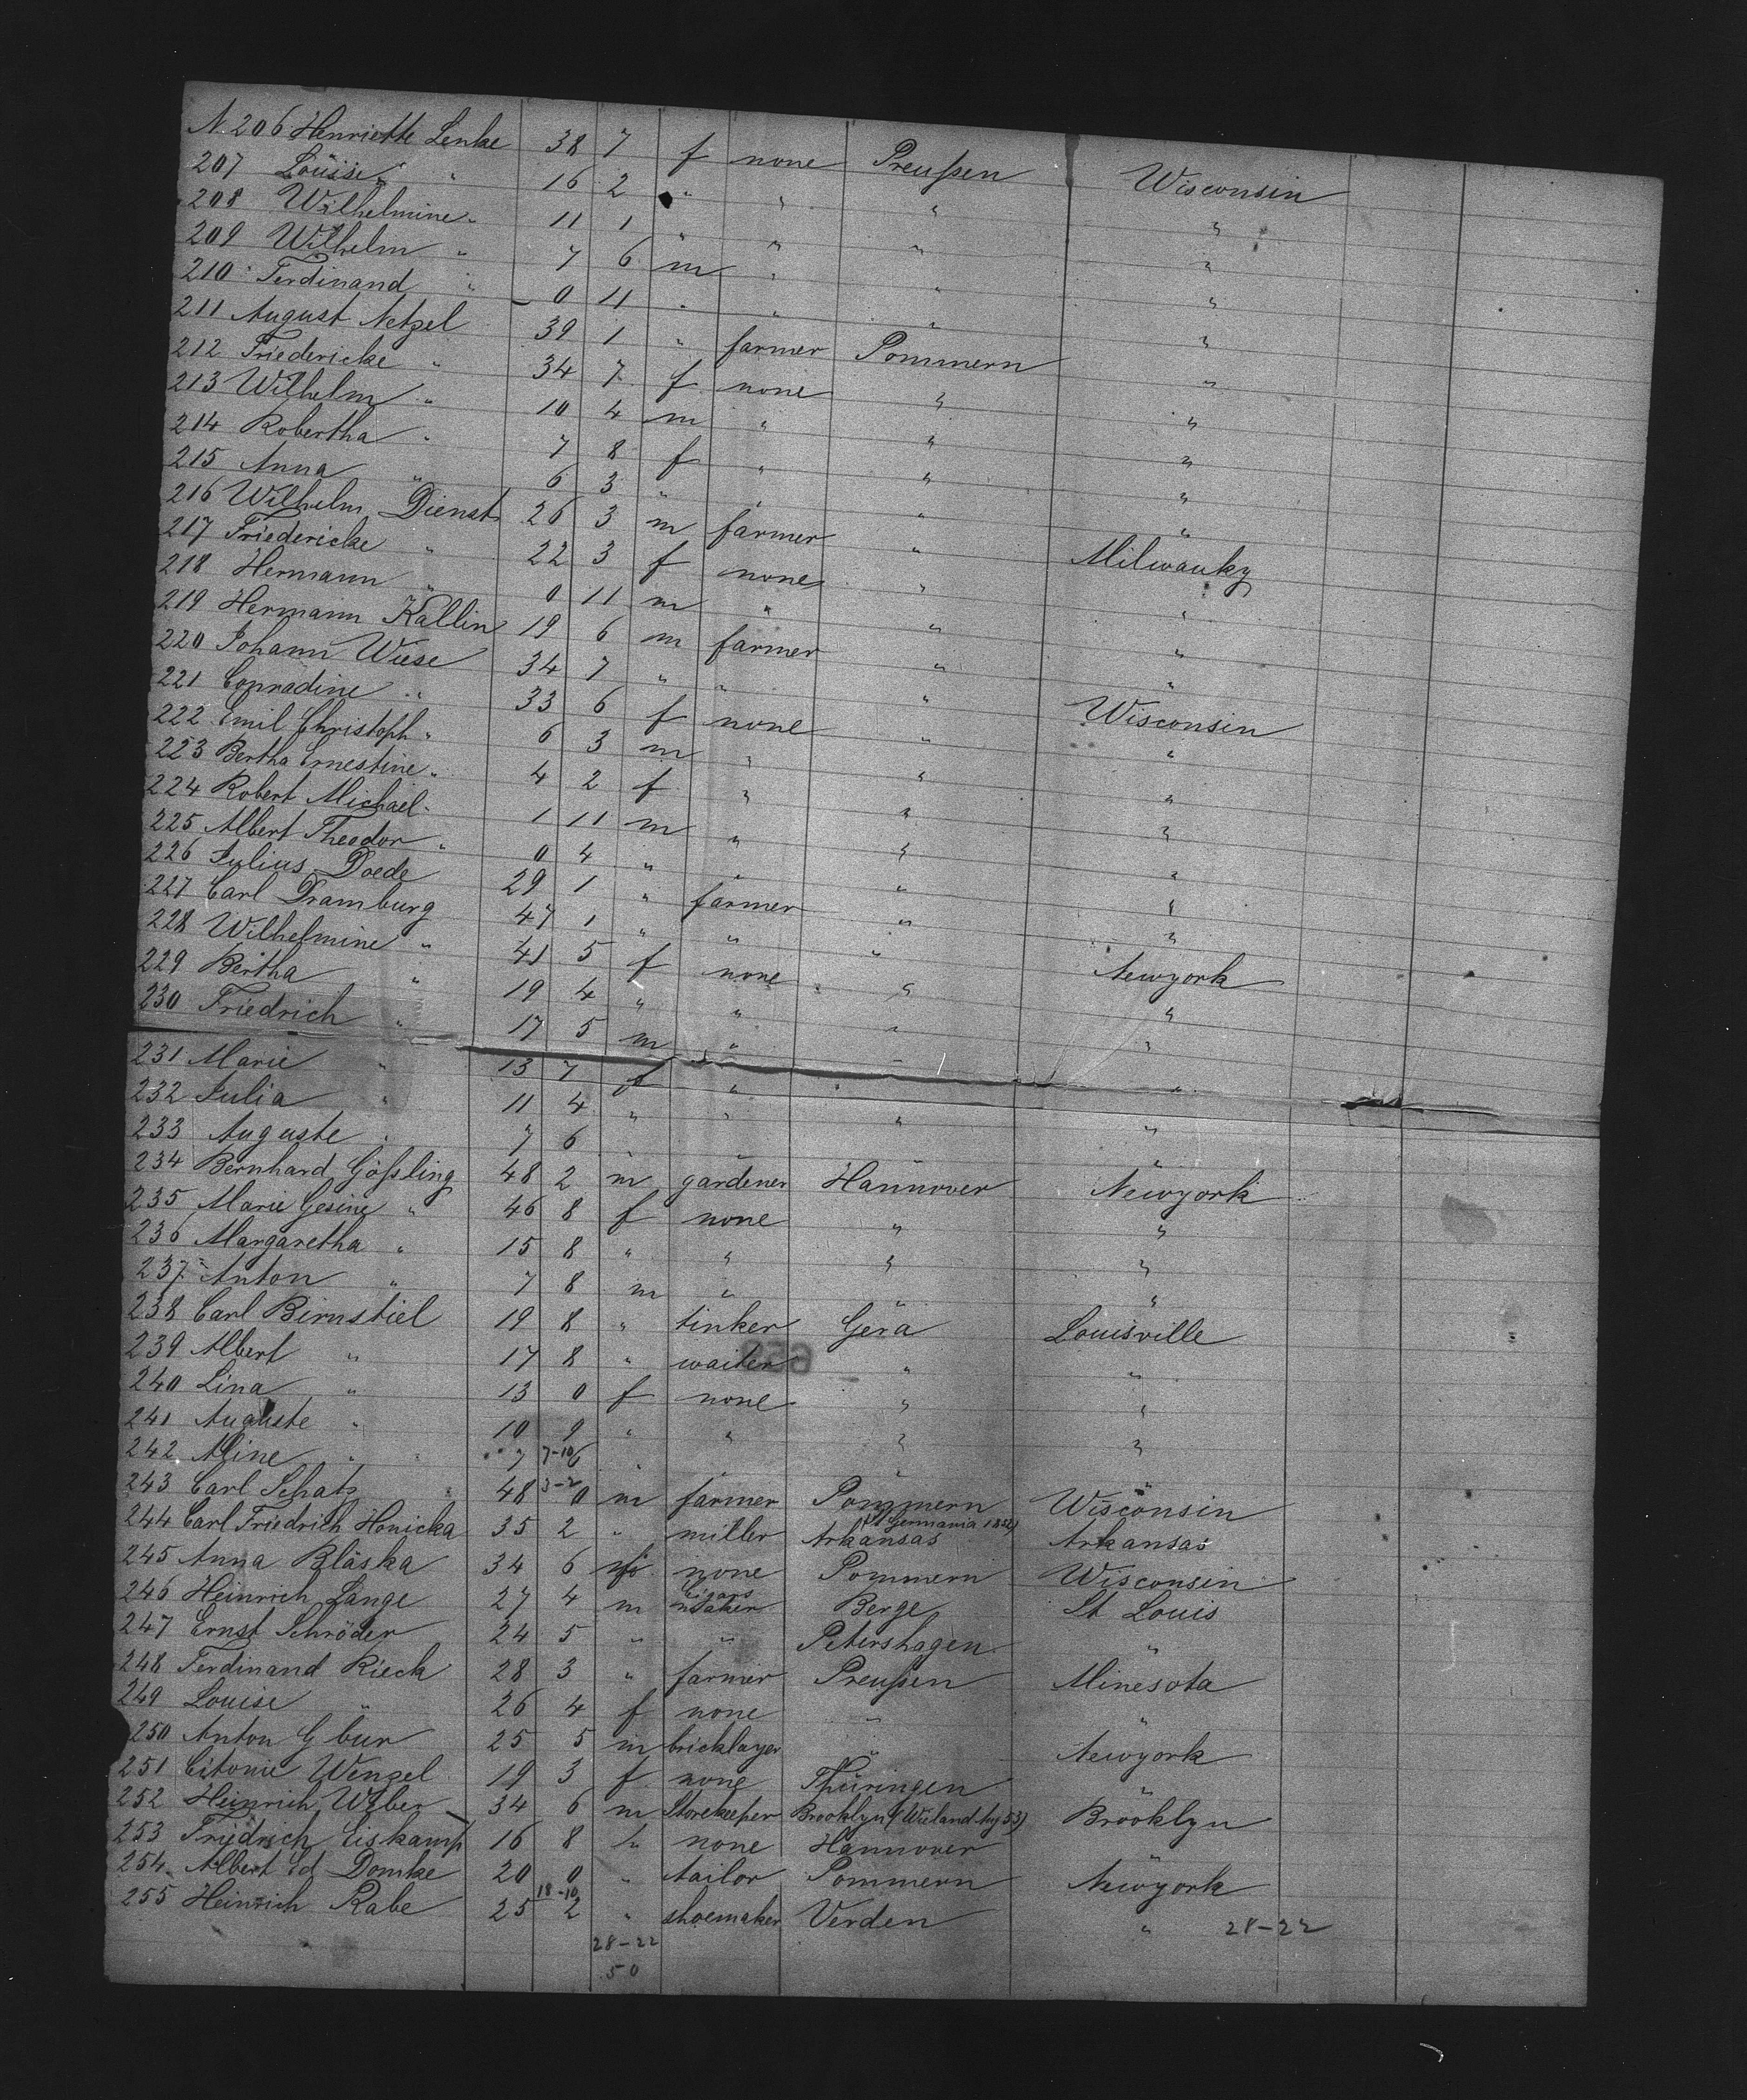 N. 206 Henriette Lenke 38 7 f none Preußen Wisconsin
207 Louise " 16 2 " " " "
208 Wilhelmine " 11 1 " " " "
209 Wilhelm " 7 6 m " " "
210 Ferdinand " 0 11 " " " "
211 August Netzel 39 1 " farmer Pommern "
212 Friedericke " 34 7 f none " "
213 Wilhelm " 10 4 m " " "
214 Robertha " 7 8 f " " "
215 Anna " 6 3 " " " "
216 Wilhelm Dienst 26 3 m farmer " "
217 Friedericke " 22 3 f none " Milwauky
218 Hermann " 0 11 m " " "
219 Hermann Kallin 19 6 m farmer " "
220 Johann Wiese 34 7 " " " "
221 Conradine " 33 6 f none " Wisconsin
222 Emil Christoph " 6 3 m " " "
223 Bertha Ernestine " 4 2 f " " "
224 Robert Michael " 1 11 m " " "
225 Albert Theodor " 0 4 " " " "
226 Julius Doede 29 1 " farmer " "
227 Carl Dramburg 47 1 " " " "
228 Wilhelmine " 41 5 f none " Newyork
229 Bertha " 19 4 " " " "
230 Friedrich " 17 5 m " " "
231 Marie " 13 7 f " " "
232 Julia " 11 4 " " " "
233 Auguste " 7 6 "
234 Bernhard Gößling 48 2 m gardener Hannover Newyork
235 Marie Gesine " 46 8 f none " "
236 Margaretha " 15 8 " " " "
237 Anton " 7 8 m " " "
238 Carl Birnstiel 19 8 " tinker Gera Louisville
239 Albert " 17 8 " waiter " "
240 Lina " 13 0 f none " "
241 Auguste " 10 9 " " " "
242 Mine " 7 7-10 6 " " " "
243 Carl Schatz 48 3-2 0 m farmer Pommern Wisconsin
244 Carl Friedrich Honicka 35 2 " miller Arkansas (Germania 1852) Arkansas
245 Anna Bläska 34 6 f none Pommern Wisconsin
246 Heinrich Lange 27 4 m Cigars maker Berge St Louis
247 Ernst Schröder 24 5 " " Petershagen "
248 Ferdinand Rieck 28 3 " farmer Preußen Minesota
249 Louise " 26 4 f none " "
250 Anton Gbur 25 5 m bricklayer " Newyork
251 Citonie Wenzel 19 3 f none Thüringen "
252 Heinrich Weber 34 6 m Storekeeper Brooklyn (Wieland 53) Brooklyn
253 Friedrich Eiskamp 16 8 " none Hannover "
254 Albert Ed Domke 20 0 " tailor Pommern Newyork
255 Heinrich Rabe 25 18-10 2 " shoemaker Verden " 28-22
28-22
50